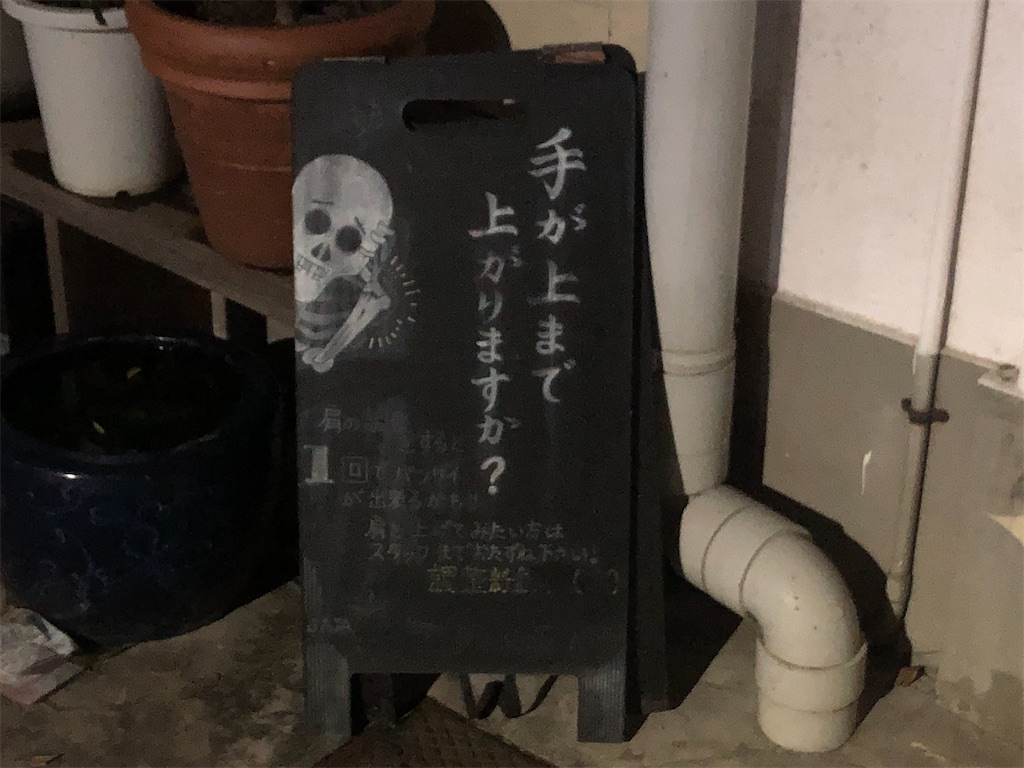 手が上まで
上がりますか?
肩の
1回でバンザイ
が出来るかも!
肩を上げてみたい方は
スタッフまでおたずね下さい!